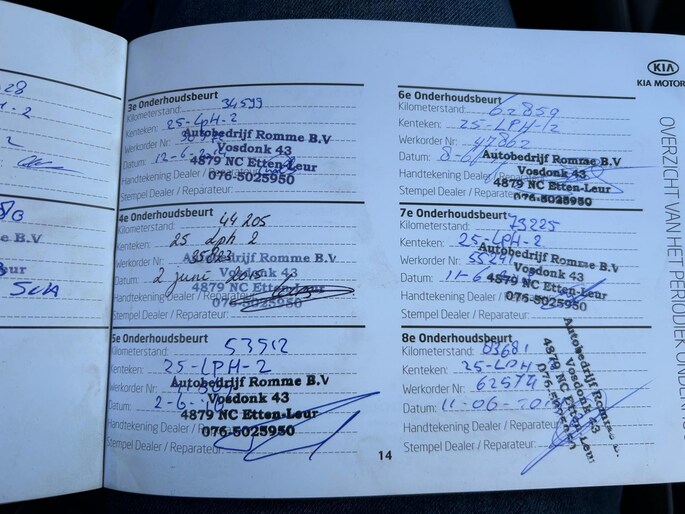 KIA
KIA MOTOR
OVERZICHT VAN HET PERIODIEK ONDERHO
3e Onderhoudsbeurt
Kilometerstand: 34599
Kenteken: 25-LPH-2
Werkorder Nr:
Datum: 12-6-
Handtekening Dealer / Reparateur:
Stempel Dealer / Reparateur:
Autobedrijf Romme B.V
Vosdonk 43
4879 NC Etten-Leur
076-5025950
4e Onderhoudsbeurt
Kilometerstand: 44205
Kenteken: 25 Lph 2
Werkorder Nr:
Datum: 2 juni 2015
Handtekening Dealer / Reparateur:
Stempel Dealer / Reparateur:
Autobedrijf Romme B.V
Vosdonk 43
4879 NC Etten-Leur
076-5025950
5e Onderhoudsbeurt
Kilometerstand: 53512
Kenteken: 25-LPH-2
Werkorder Nr:
Datum: 2-6-
Handtekening Dealer / Reparateur:
Stempel Dealer / Reparateur:
Autobedrijf Romme B.V
Vosdonk 43
4879 NC Etten-Leur
076-5025950
6e Onderhoudsbeurt
Kilometerstand: 62859
Kenteken: 25-LPH-2
Werkorder Nr:
Datum:
Handtekening Dealer / Reparateur:
Stempel Dealer / Reparateur:
Autobedrijf Romme B.V
Vosdonk 43
4879 NC Etten-Leur
076-5025950
7e Onderhoudsbeurt
Kilometerstand: 73225
Kenteken: 25-LPH-2
Werkorder Nr: 55291
Datum: 11-6-
Handtekening Dealer / Reparateur:
Stempel Dealer / Reparateur:
Autobedrijf Romme B.V
Vosdonk 43
4879 NC Etten-Leur
076-5025950
8e Onderhoudsbeurt
Kilometerstand: 83681
Kenteken: 25-LPH-2
Werkorder Nr: 62574
Datum: 11-06-
Handtekening Dealer / Reparateur:
Stempel Dealer / Reparateur:
Autobedrijf Romme B.
Vosdonk 43
4879 NC Etten-Leur
14